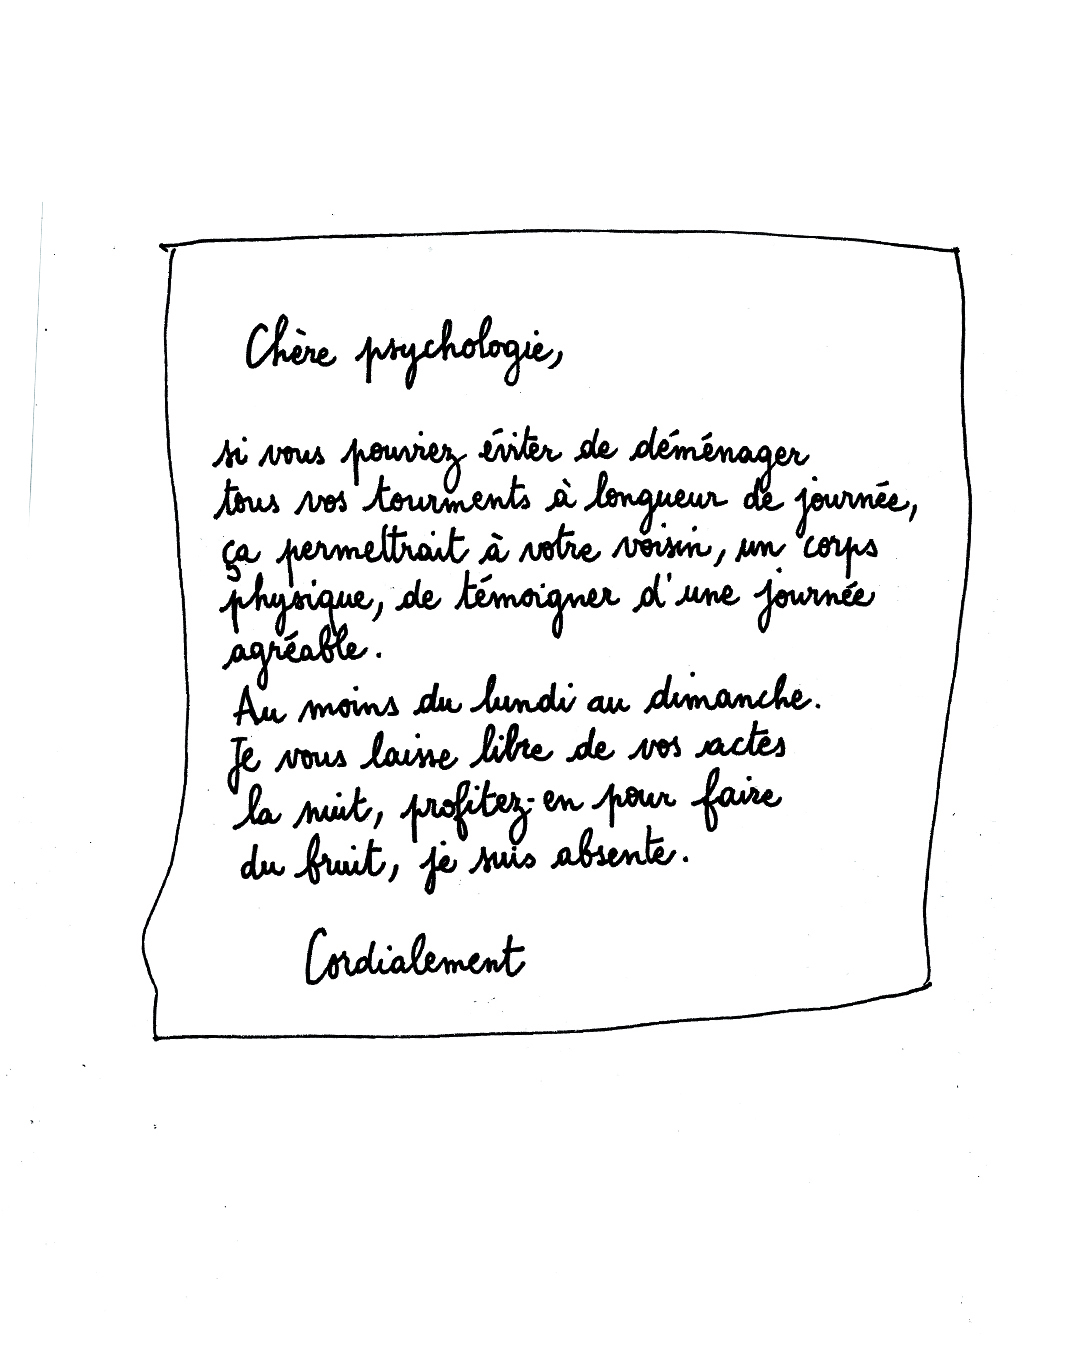 Chère psychologie,
si vous pouviez éviter de déménager
tous vos tourments à longueur de journée,
ça permettrait à votre voisin, un corps
physique, de témoigner d'une journée
agréable.
Au moins du lundi au dimanche.
Je vous laisse libre de vos actes
la nuit, profitez-en pour faire
du bruit, je suis absente.
Cordialement